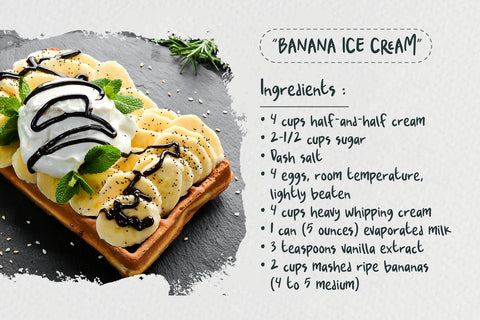 "BANANA ICE CREAM"
Ingredients :
• 4 cups half-and-half cream
• 2-1/2 cups sugar
• Dash salt
• 4 eggs, room temperature,
lightly beaten
• 4 cups heavy whipping cream
• 1 can (5 ounces) evaporated milk
• 3 teaspoons vanilla extract
• 2 cups mashed ripe bananas
(4 to 5 medium)